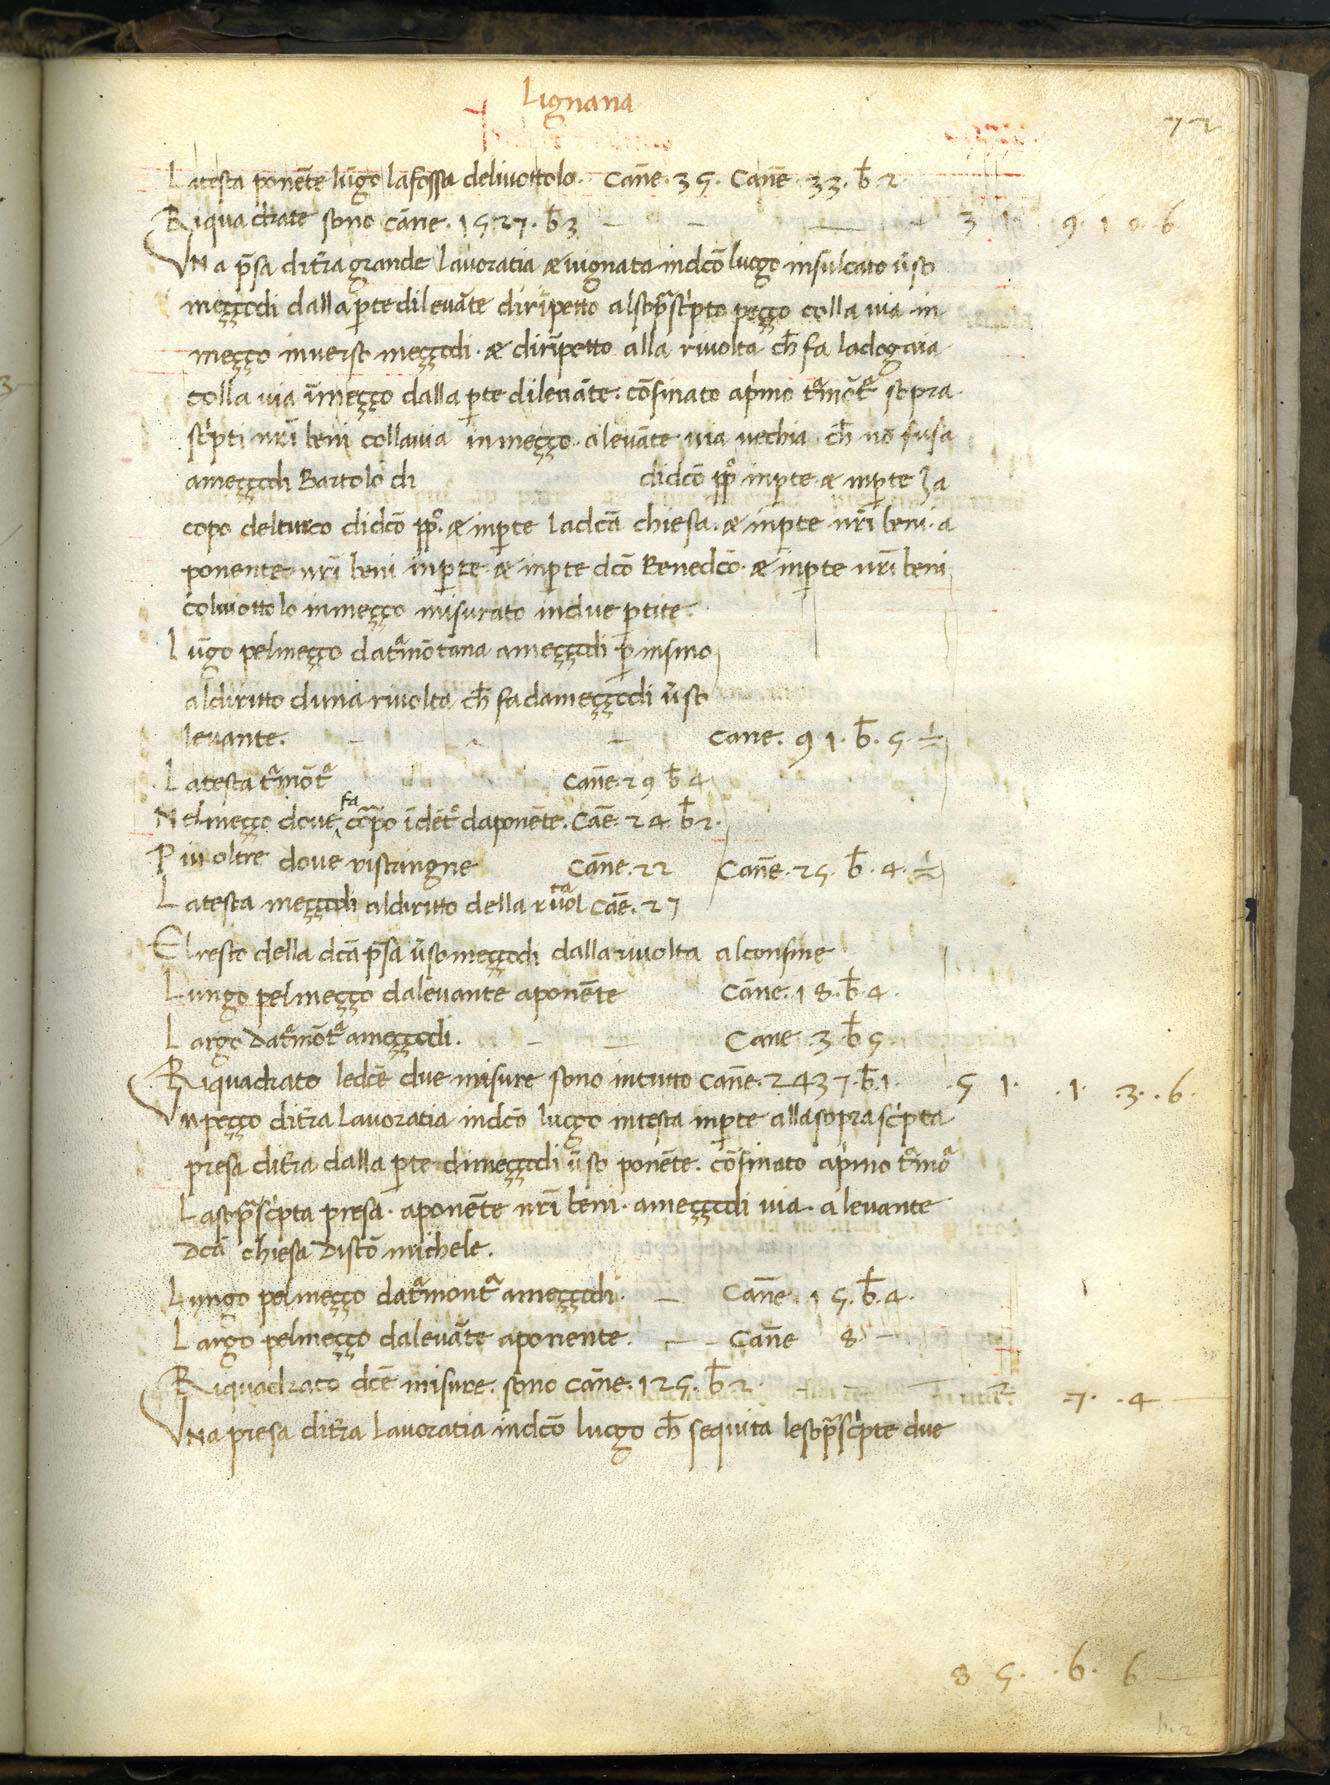 Lignana
72
Latesta ponēte lūgo lafossa deliuottolo. Canē. 35. Canē. 33. b̄. 2.
Riquadrate sono cāne. 1527. b̄ 3 — — — 3 1 9. 1 0. 6
VNa p̄sa dit̄ra grande lauoratia æ uignata indc̄o luogo insulcato ūso
meççodi dalla p̱te dileuāte dirīpetto alsop̄ascīpto peçço colla uia in
meçço inuerso meççodi. æ dirīpetto alla riuolta ch̄ fa ladogaia
colla uia īmeçço dalla p̱te dileuāte. cōfinato ap̄mo t̄mōt̄ sopra
scīpti nr̄i beni collauia inmeçço. aleuāte uia uechia. ch̄ nō susa
ameççodi Bartolo di didc̄o pp̊ inp̱te æ inp̱te Ja
copo delturco didc̄o pp̊. æ inp̱te ladc̄a chiesa. æ inp̱te nr̄i beni. a
ponente nr̄i beni inp̱te æ inp̱te dc̄o Benedc̄o. æ inp̱te nr̄i beni
coluiottolo inmeçço misurato indue p̱tite
Lūgo pelmeçço dat̄mōtana ameççodi p̱ insino
aldiritto duna riuolta ch̄ fa dameççodi ūso
leuante. — — — Cane. 91. b̄. 5. ½
Latesta t̄mōt̄ Canē. 29 b̄ 4
Nelmeçço doue fa cāpo īdēt̊ daponēte. Cāe. 24 b̄ 2.
Piu oltre doue ristringne Canē. 22 Canē. 25. b̄. 4. ½
Latesta meççodi aldiritto della riuolta Cāe. 27
El resto della dc̄a p̄sa ūsomeççodi dalla riuolta alconfine
Lungo pelmeçço daleuante aponēte Cāne. 18. b̄. 4.
Largo dat̄mōt̄ ameççodi. — — Cane. 3 b̄ 5
Riquadrato ledc̄e due misure sono intutto Canē. 2437. b̄. 1. . 5 1. . 1. . 3. . 6.
Vn peçço dit̄ra lauoratia indc̄o luogo intesta inp̱te allasoprascīpta
presa dit̄ra dalla p̱te dimeççodi ūso ponēte. cōfinato ap̄mo t̄mō
Lasop̄ascīpta presa. aponēte nr̄i beni. ameççodi uia. aleuante
dc̄a chiesa discō michele.
Lungo pelmeçço dat̄mont̄ ameççodi. — Canē. 15. b̄. 4.
Largo pelmeçço daleuāte aponente. — — Canē 8 —
Riquadrato dc̄e misure. sono Cāne. 125. b̄ 2 — — 2 . 7. . 4
VNa presa dit̄ra lauoratia indc̄o luogo ch̄ sequita lesop̄ascīpte due
8 5. . 6. 6